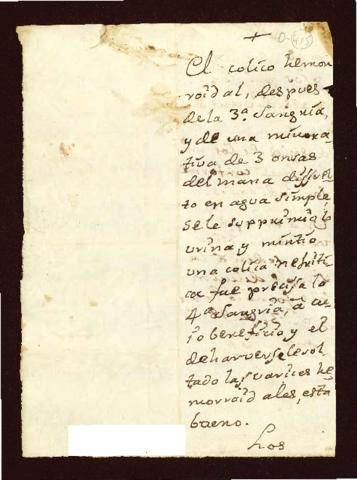 +
El colico hemor
roidal, despues
de la 3ª. sangria,
y de una minora
tiva de 3 onsas
del mana dissuel
to en agua simple,
se le supprimio la
urina y mintio
una colica nefriti
ca fue precisa la
4ª sangria, à cu
io beneficio y el
de haverse le sol
tado las varices he
morroidales, esta
bueno.
Los